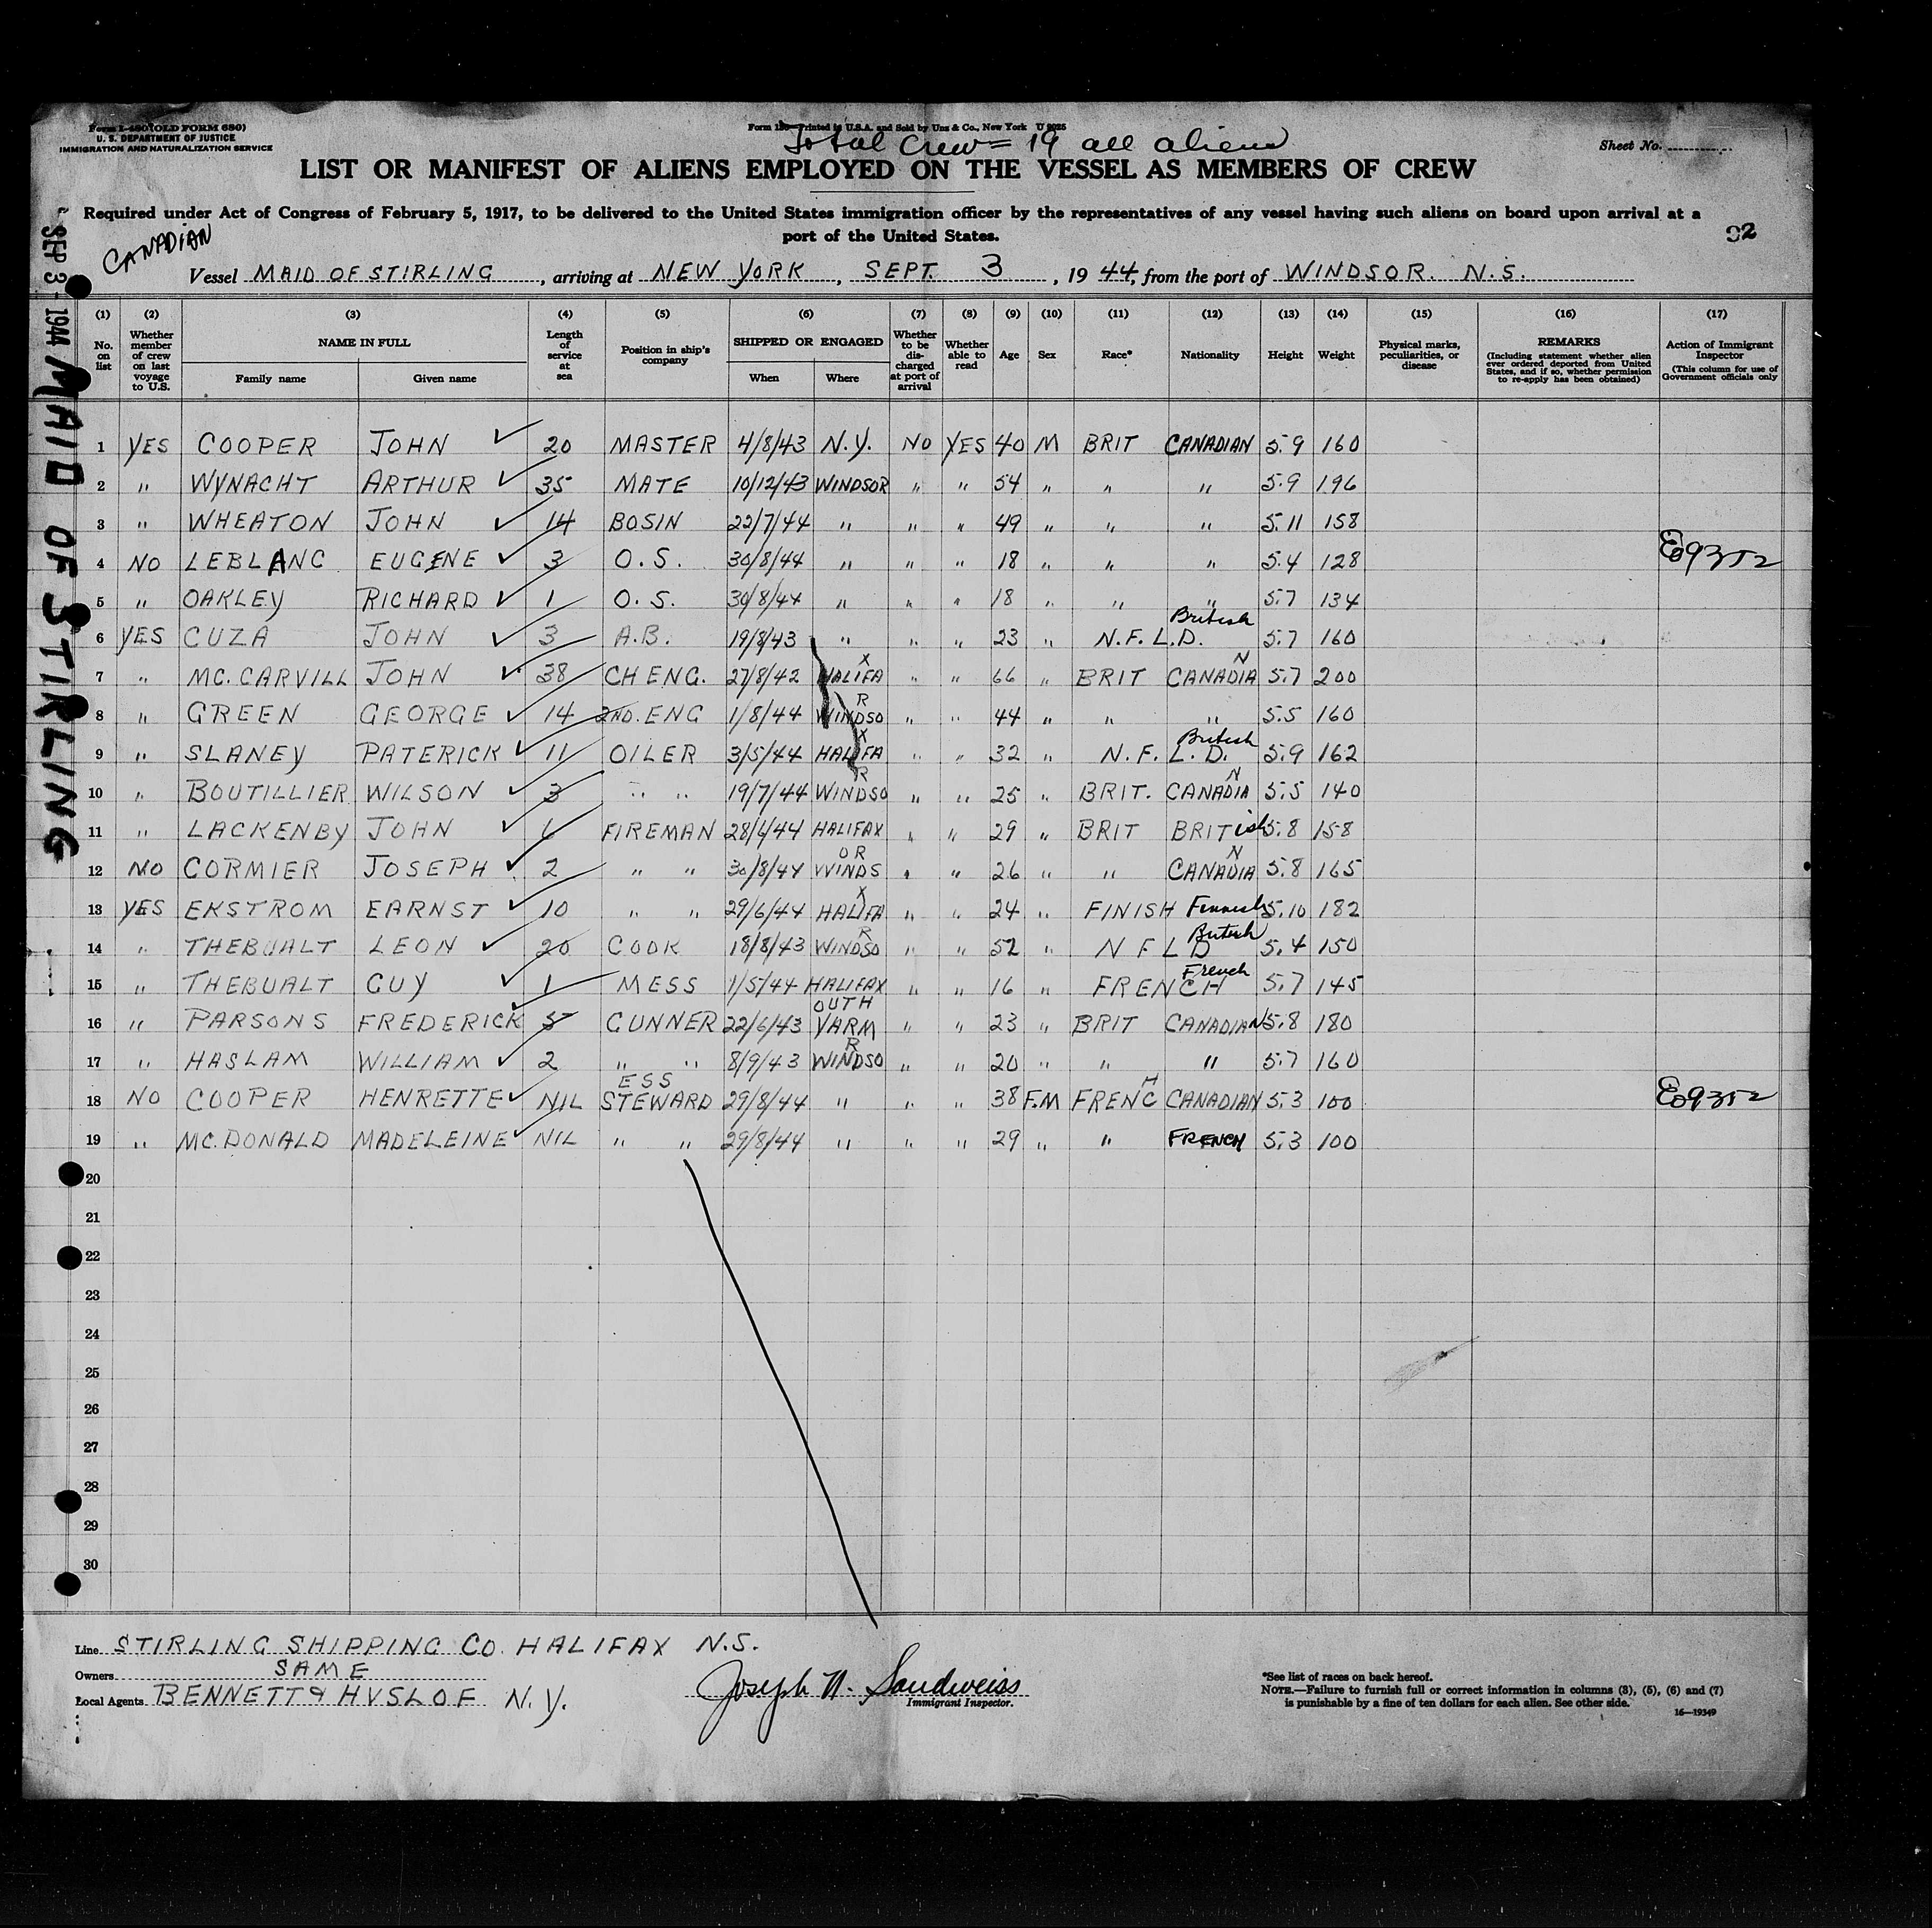 Form I-480 (OLD FORM 680)
U. S. DEPARTMENT OF JUSTICE
IMMIGRATION AND NATURALIZATION SERVICE
Printed in U.S.A. and Sold by Unz & Co., New York
Total Crew = 19 all aliens
Sheet No.
LIST OR MANIFEST OF ALIENS EMPLOYED ON THE VESSEL AS MEMBERS OF CREW
Required under Act of Congress of February 5, 1917, to be delivered to the United States immigration officer by the representatives of any vessel having such aliens on board upon arrival at a
port of the United States.
92
CANADIAN
Vessel MAID OF STIRLING, arriving at NEW YORK, SEPT. 3, 1944, from the port of WINDSOR. N.S.
SEP 3 - 1944
MAID OF STIRLING
(1) (2) (3) (4) (5) (6) (7) (8) (9) (10) (11) (12) (13) (14) (15) (16) (17)
No. on list
Whether member of crew on last voyage to U.S.
NAME IN FULL
Family name
Given name
Length of service at sea
Position in ship's company
SHIPPED OR ENGAGED
When
Where
Whether to be discharged at port of arrival
Whether able to read
Age
Sex
Race*
Nationality
Height
Weight
Physical marks, peculiarities, or disease
REMARKS
(Including statement whether alien ever ordered deported from United States, and if so, whether permission to re-apply has been obtained)
Action of Immigrant Inspector
(This column for use of Government officials only
1 YES COOPER JOHN ✓ 20 MASTER 4/8/43 N.Y. NO YES 40 M BRIT CANADIAN 5.9 160
2 " WYNACHT ARTHUR ✓ 35 MATE 10/12/43 WINDSOR " " 54 " " " 5.9 196
3 " WHEATON JOHN ✓ 14 BOSIN 22/7/44 " " " 49 " " " 5.11 158
4 NO LEBLANC EUGENE ✓ 3 O.S. 30/8/44 " " " 18 " " " 5.4 128
5 " OAKLEY RICHARD ✓ 1 O.S. 30/8/44 " " " 18 " " " 5.7 134
6 YES CUZA JOHN ✓ 3 A.B. 19/8/43 " " " 23 " N.F.L.D. British 5.7 160
7 " MC.CARVILL JOHN ✓ 38 CH ENG. 27/8/42 HALIFAX " " 66 " BRIT CANADIAN 5.7 200
8 " GREEN GEORGE ✓ 14 2ND. ENG 1/8/44 WINDSOR " " 44 " " " 5.5 160
9 " SLANEY PATERICK ✓ 11 OILER 3/5/44 HALIFAX " " 32 " N.F.L.D. British 5.9 162
10 " BOUTILLIER WILSON ✓ 3 " " 19/7/44 WINDSOR " " 25 " BRIT. CANADIAN 5.5 140
11 " LACKENBY JOHN ✓ 6 FIREMAN 28/6/44 HALIFAX " " 29 " BRIT BRITish 5.8 158
12 NO CORMIER JOSEPH ✓ 2 " " 30/8/44 WINDSOR " " 26 " " CANADIAN 5.8 165
13 YES EKSTROM EARNST ✓ 10 " " 29/6/44 HALIFAX " " 24 " FINISH Finnish 5.10 182
14 " THEBUALT LEON ✓ 20 COOK 18/8/43 WINDSOR " " 52 " NFLD British 5.4 150
15 " THEBUALT GUY ✓ 1 MESS 1/5/44 HALIFAX " " 16 " FRENCH French 5.7 145
16 " PARSONS FREDERICK ✓ 5 GUNNER 22/6/43 YARMOUTH " " 23 " BRIT CANADIAN 5.8 180
17 " HASLAM WILLIAM ✓ 2 " " 8/9/43 WINDSOR " " 20 " " " 5.7 160
18 NO COOPER HENRETTE ✓ NIL STEWARDESS 29/8/44 " " " 38 F.M FRENCH CANADIAN 5.3 100
19 " MC.DONALD MADELEINE ✓ NIL " " 29/8/44 " " " 29 " " FRENCH 5.3 100
20
21
22
23
24
25
26
27
28
29
30
Line STIRLING SHIPPING CO. HALIFAX N.S.
Owners SAME
Local Agents BENNETT & HVSLOF N.Y.
Joseph N. Sandweiss
Immigrant Inspector.
*See list of races on back hereof.
NOTE.—Failure to furnish full or correct information in columns (3), (5), (6) and (7)
is punishable by a fine of ten dollars for each alien. See other side.
16—19349